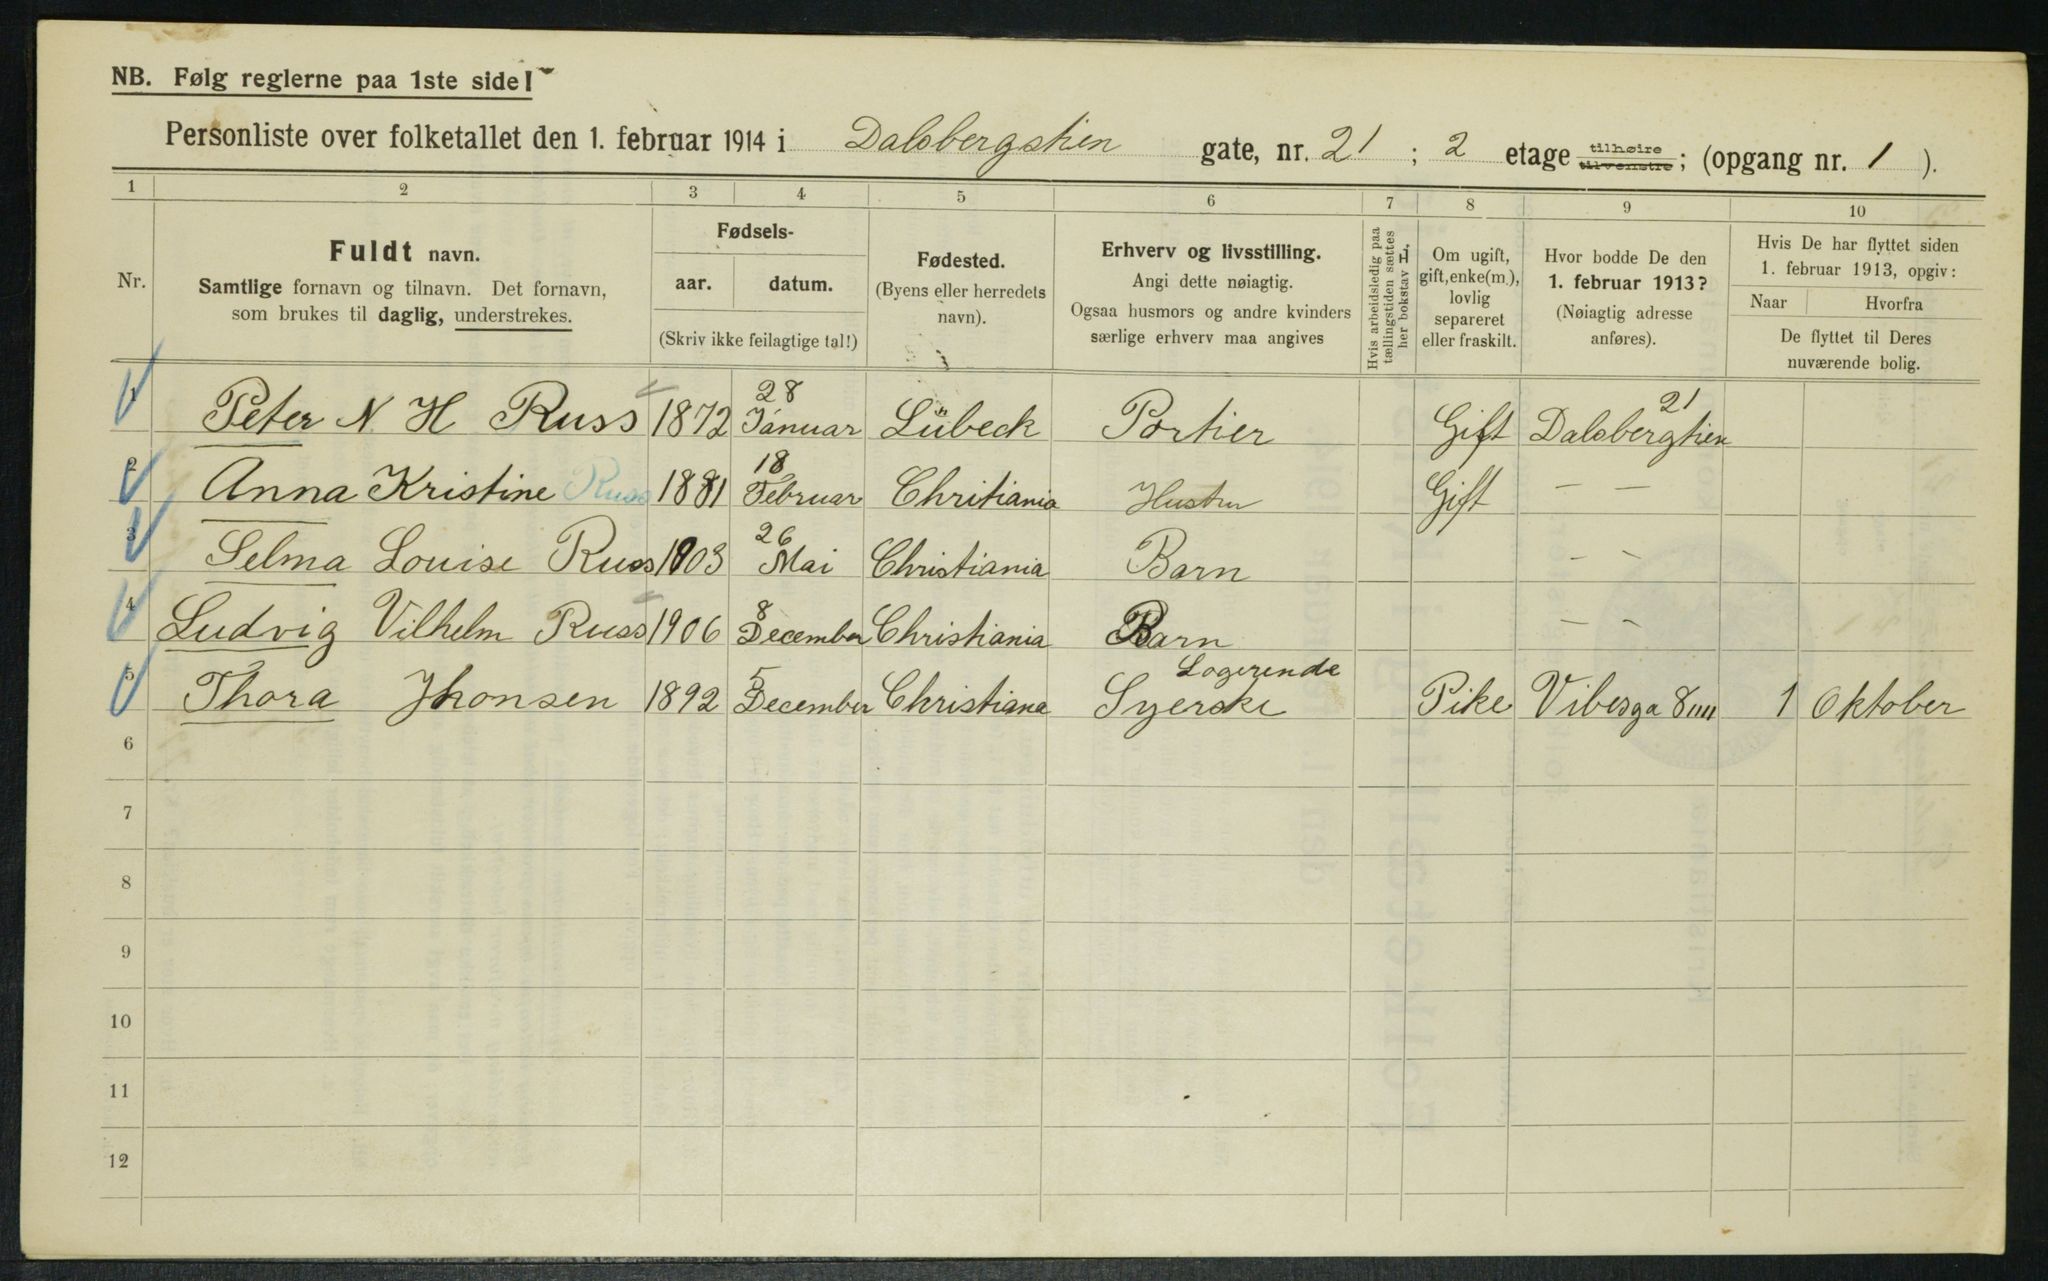 NB. Følg reglerne paa 1ste side!
Personliste over folketallet den 1. februar 1914 i Dalsbergstien gate, nr. 21 ; 2 etage tilhøire tilvenstre ; (opgang nr. 1 ).
1 2 3 4 5 6 7 8 9 10
Nr.
Fuldt navn.
Samtlige fornavn og tilnavn. Det fornavn,
som brukes til daglig, understrekes.
Fødsels-
aar. datum.
(Skriv ikke feilagtige tal!)
Fødested.
(Byens eller herredets
navn).
Erhverv og livsstilling.
Angi dette nøiagtig.
Ogsaa husmors og andre kvinders
særlige erhverv maa angives
Hvis arbeidsledig paa
tællingstiden sættes
her bokstav L,
Om ugift,
gift, enke(m.),
lovlig
separeret
eller fraskilt.
Hvor bodde De den
1. februar 1913?
(Nøiagtig adresse
anføres).
Hvis De har flyttet siden
1. februar 1913, opgiv:
Naar Hvorfra
De flyttet til Deres
nuværende bolig.
1 Peter N H Russ 1872 28 Januar Lübeck Portier Gift Dalsbergtien 21
2 Anna Kristine Russ 1881 18 Februar Chritiania Hustru Gift — —
3 Selma Louise Russ 1903 26 Mai Christiania Barn - -
4 Ludvig Vilhelm Russ 1906 8 December Christiania Barn - -
5 Thora Jhonsen 1892 5 December Christiana Syerske Logerende Pike Vibesga 8 IIII 1 Oktober
6
7
8
9
10
11
12